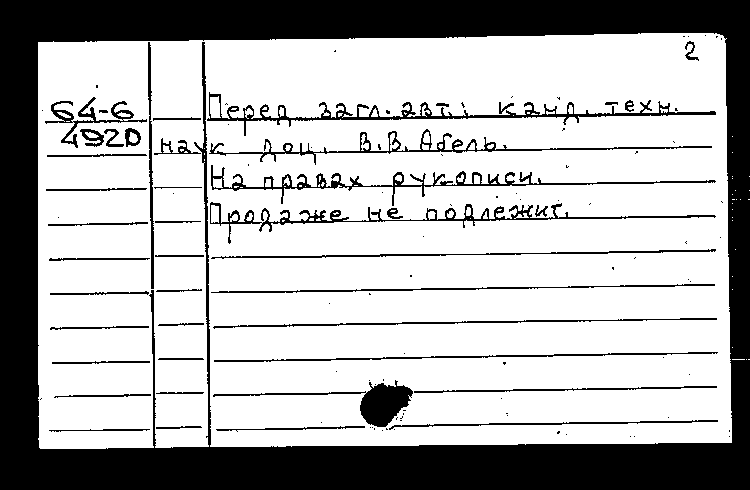 2
64-6 Перед загл. авт.: канд. техн.
4920 наук доц. В.В. Абель.
На правах рукописи.
Продаже не подлежит.